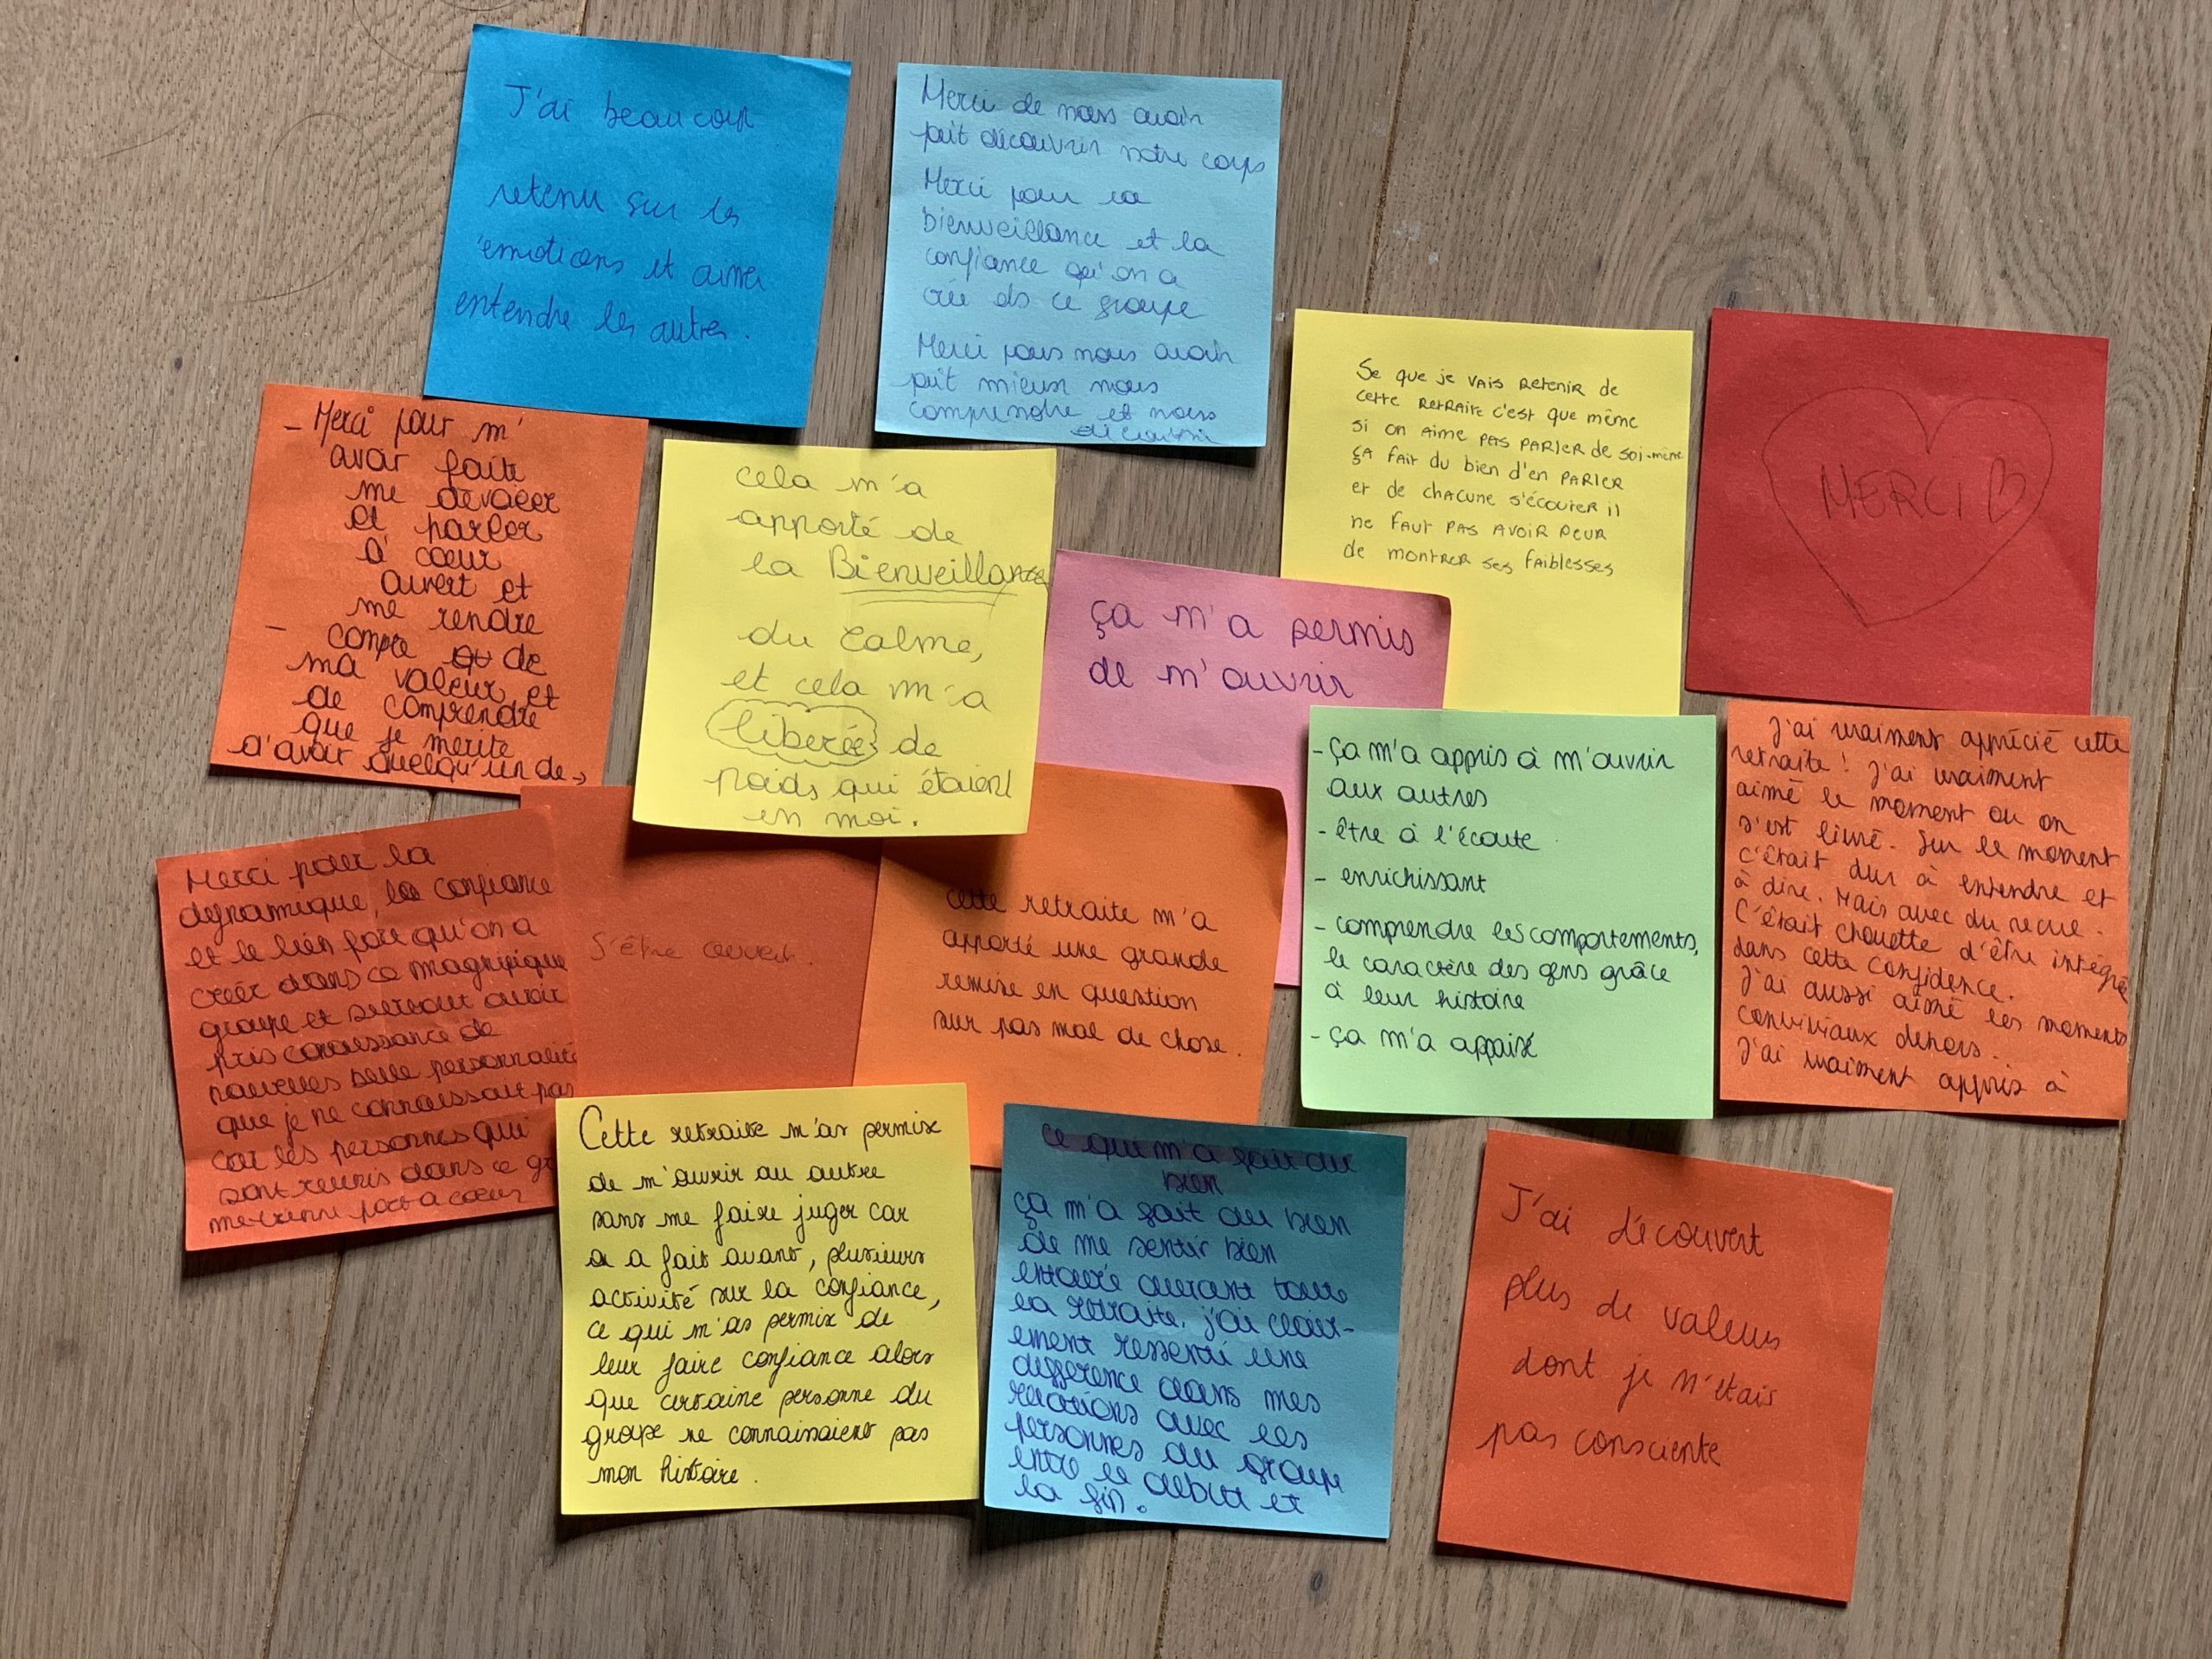 J'ai beaucoup
retenu sur les
émotions et ainsi
entendre les autres.
Merci de nous avoir
fait découvrir notre corps
Merci pour ca
bienveillance et la
confiance qu'on a
crée ds ce groupe
Merci pous nous avoir
fait mieux nous
comprendre et nous
découvrir
Se que je vais retenir de
cette retraite c'est que même
si on aime pas parler de soi-même
ça fait du bien d'en parler
et de chacune s'écouter il
ne faut pas avoir peur
de montrer ses faiblesses
MERCI
- Merci pour m'
avoir faite
me dévoiler
et parler
à coeur
ouvert et
- me rendre
compte de
ma valeur et
de comprendre
que je merite
d'avoir quelqu'un de →
cela m'a
apporté de
la Bienveillance
du calme,
et cela m'a
liberée de
poids qui étaient
en moi.
ça m'a permis
de m'ouvrir
- ça m'a appris à m'ouvrir
aux autres
- être à l'écoute
- enrichissant
- comprendre les comportements,
le caractère des gens grâce
à leur histoire
- ça m'a appaisé
J'ai vraiment apprécié cette
retraite ! J'ai vraiment
aimé le moment ou on
s'est livré. Sur le moment
c'était dur à entendre et
à dire. Mais avec du recul.
C'était chouette d'être intégrée
dans cette confidence.
J'ai aussi aimé les moments
conviviaux dehors.
J'ai vraiment appris à
Merci pour la
dynamique, la confiance
et le lien fort qu'on a
créér dans ce magnifique
groupe et surtout avoir
pris conaissance de
nouvelles belle personnalité
que je ne connaissait pas
car les personnes qui
sont reunis dans ce gr
me tienne fort a coeur
S'être ouvert.
Cette retraite m'a
apporté une grande
remise en question
sur pas mal de chose.
Cette retraite m'as permise
de m'ouvrir au autre
sans me faire juger car
on a fait avant, plusieurs
activité sur la confiance,
ce qui m'as permix de
leur faire confiance alors
que certaine personne du
groupe ne connaissaient pas
mon histoire.
ce qui m'a fait du
bien
ça m'a fait du bien
de me sentir bien
entouré durant toute
la retraite, j'ai clair-
ement ressenti une
difference dans mes
relations avec les
personnes du groupe
entre le début et
la fin.
J'ai découvert
plus de valeurs
dont je n'étais
pas consciente